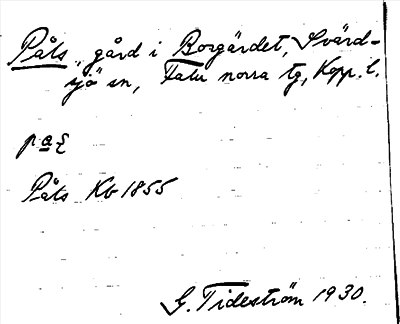 Påls, gård i Borgärdet, Svärd-
sjö sn, Falu norra tg, Kopp. l.
Påls Kb 1855
G. Tideström 1930.